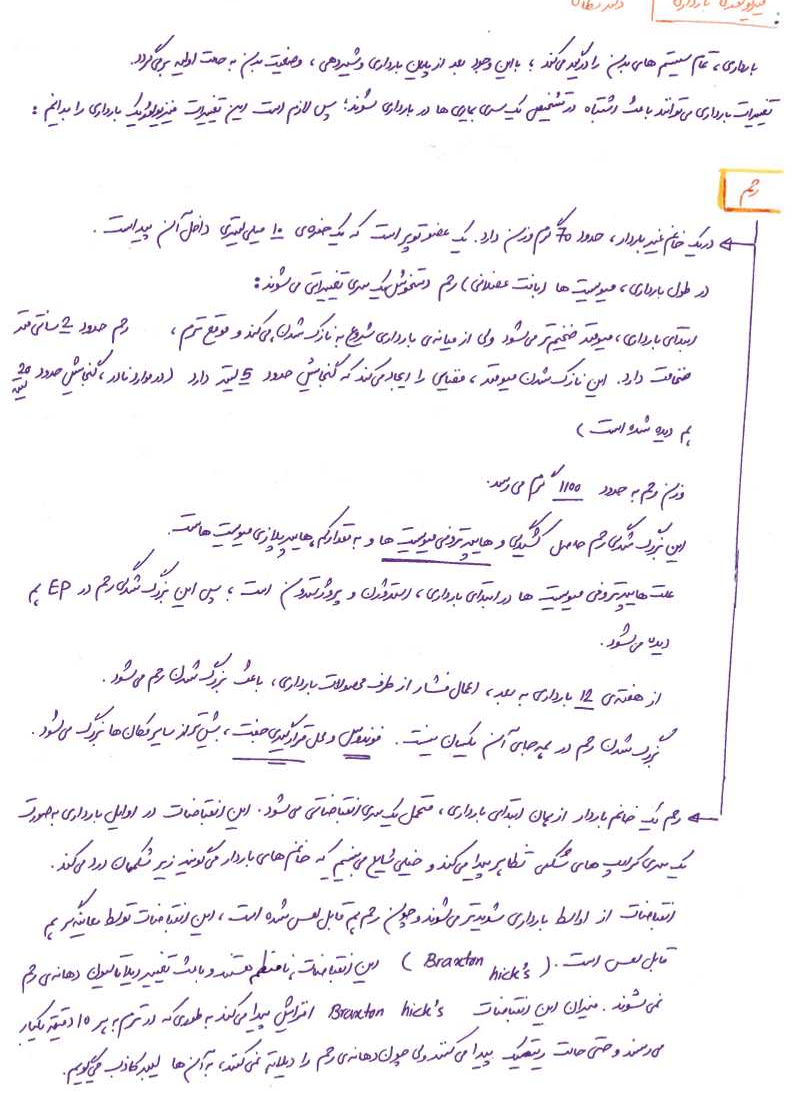 فیزیولوژی بارداری
بارداری، تمام سیستم های بدن را درگیر می‌کند؛ با این وجود بعد از پایان بارداری و شیردهی، وضعیت بدن به حالت اولیه برمی‌گردد.
تغییرات بارداری می‌توانند باعث اشتباه در تشخیص یک سری بیماری ها در بارداری شوند؛ پس لازم است این تغییرات فیزیولوژیک بارداری را بدانیم:
رحم
در یک خانم غیر باردار، حدود 70 گرم وزن دارد. یک عضو توپر است که یک حفره‌ی 10 میلی لیتری داخل آن پیداست.
در طول بارداری، میوسیت ها (بافت عضلانی) رحم دستخوش یک سری تغییراتی می‌شوند:
ابتدای بارداری، میومتر ضخیم‌تر می‌شود ولی از میانه‌ی بارداری شروع به نازک شدن می‌کند و موقع ترم، رحم حدود 2 سانتی متر
ضخامت دارد. این نازک شدن میومتر، فضایی را ایجاد می‌کند که گنجایش حدود 5 لیتر دارد (در موارد نادر، گنجایش حدود 20 لیتر
هم دیده شده است)
وزن رحم به حدود 1100 گرم می‌رسد.
این بزرگ شدگی رحم حاصل کشیدگی و هایپرتروفی میوسیت ها و به مقدار کم هایپرپلازی میوسیت هاست.
علت هایپرتروفی میوسیت ها در ابتدای بارداری، استروژن و پروژسترون است؛ پس این بزرگ شدگی رحم در EP هم
دیده می‌شود.
از هفته‌ی 12 بارداری به بعد، اعمال فشار از طرف محصولات بارداری، باعث بزرگ شدن رحم می‌شود.
بزرگ شدن رحم در همه جای آن یکسان نیست. فوندوس و محل قرارگیری جفت، بیش تر از سایر مکان ها بزرگ می‌شود.
رحم یک خانم باردار از همان ابتدای بارداری، متحمل یک سری انقباضاتی می‌شود. این انقباضات در اوایل بارداری به صورت
یک سری کرامپ های شکمی تظاهر پیدا می‌کند و خیلی شایع می‌بینیم که خانم های باردار می‌گویند زیر شکممان درد می‌کند.
انقباضات از اواسط بارداری شدیدتر می‌شوند و چون رحم هم قابل لمس شده است، این انقباضات توسط معاینه‌گر هم
قابل لمس است. (Braxton hick's) این انقباضات، نامنظم هستند و باعث تغییر دیلاتاسیون دهانه‌ی رحم
نمی‌شوند. میزان این انقباضات Braxton hick's افزایش پیدا می‌کند به طوری که در ترم به هر 10 دقیقه یکبار
می‌رسند و حتی حالت ریتمیک پیدا می‌کنند ولی چون دهانه‌ی رحم را دیلاته نمی‌کنند، به آن ها لیبر کاذب می‌گوییم.